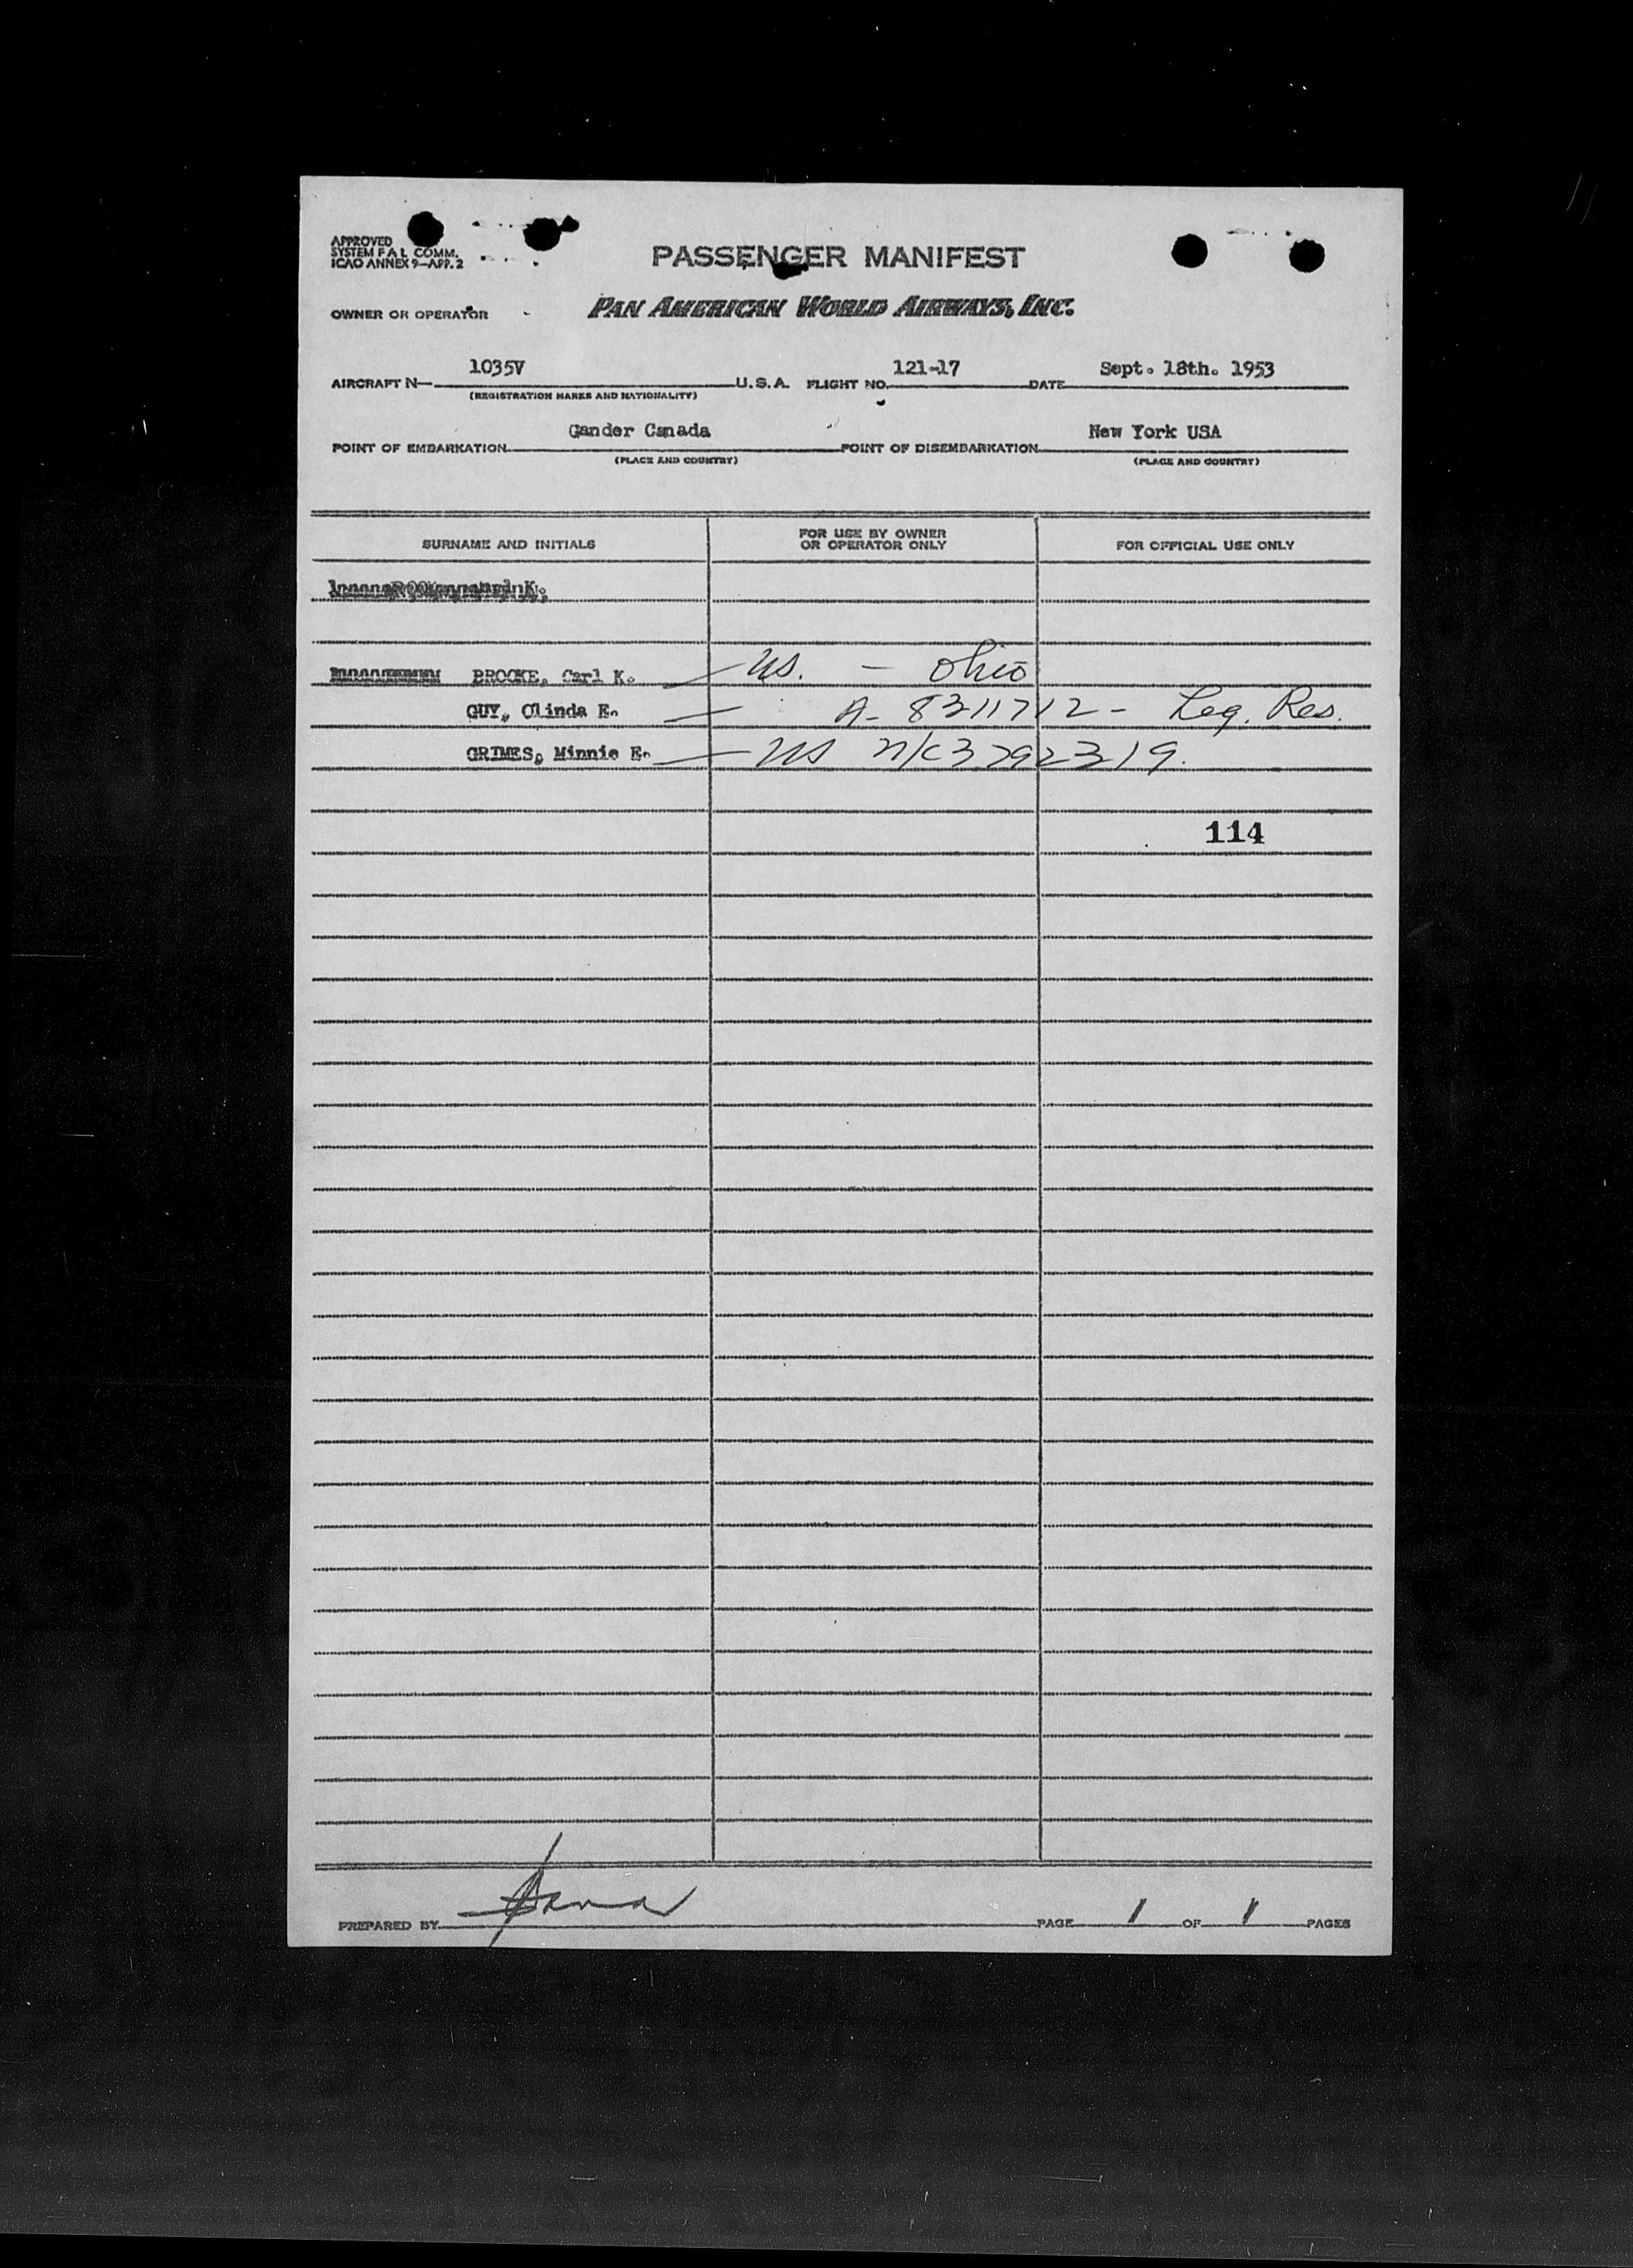 APPROVED
SYSTEM F A L COMM.
ICAO ANNEX 9—APP. 2
PASSENGER MANIFEST
OWNER OR OPERATOR
PAN AMERICAN WORLD AIRWAYS, INC.
AIRCRAFT N— 1035V U.S.A. FLIGHT NO. 121-17 DATE Sept. 18th. 1953
(REGISTRATION MARKS AND NATIONALITY)
POINT OF EMBARKATION Gander Canada POINT OF DISEMBARKATION New York USA
(PLACE AND COUNTRY) (PLACE AND COUNTRY)
SURNAME AND INITIALS FOR USE BY OWNER OR OPERATOR ONLY FOR OFFICIAL USE ONLY
BROOKE, Carl K. — US. — Ohio
GUY, Olinda E. — A- 8311712 - Leg. Res.
GRIMES, Minnie E. — US N/C 3792319.
114
PREPARED BY PAGE 1 OF 1 PAGES